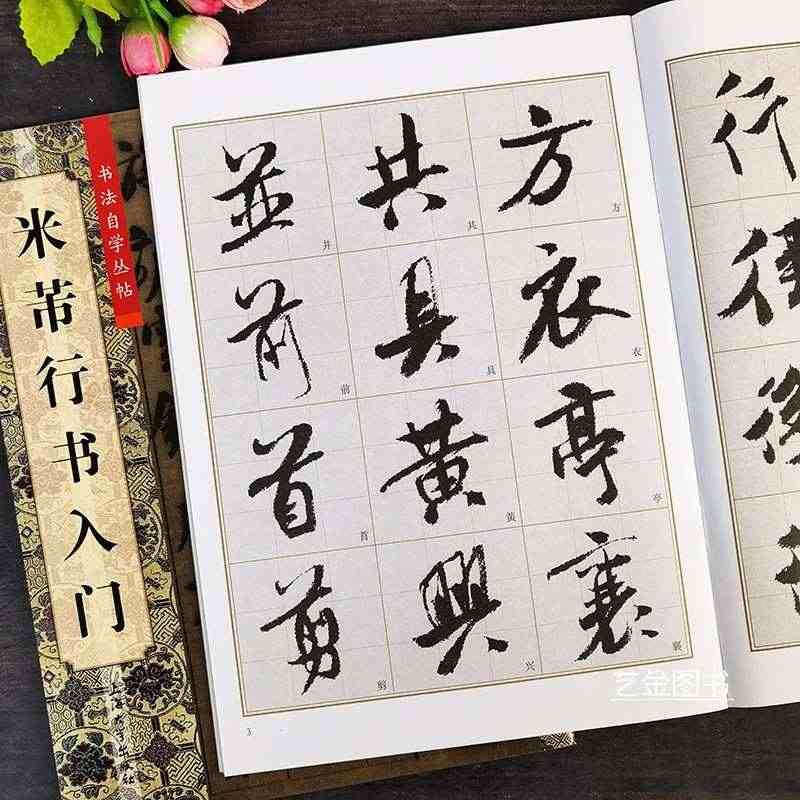 书法自学丛帖
米芾行书入门
上海大学出版社
方 衣 亭 襄
方 衣 亭 襄
共 具 黄 興
其 具 黄 兴
並 前 首 剪
并 前 首 剪
3
行
後
艺金图书